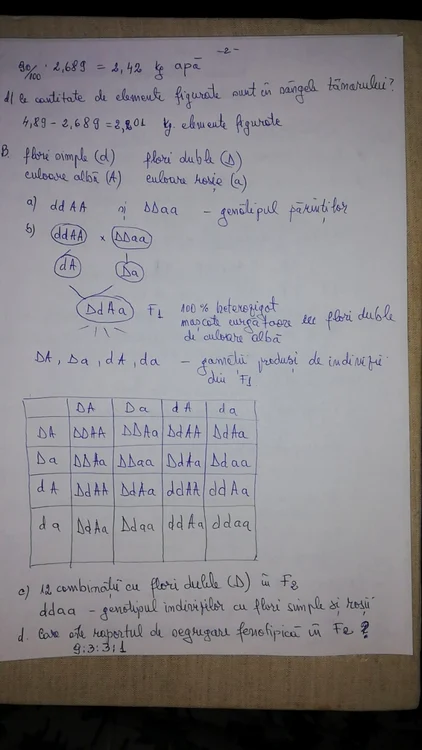 -2-
90/100 · 2,689 = 2,42 kg apă
d) Ce cantitate de elemente figurate sunt în sângele tânărului?
4,89 - 2,689 = 2,201 kg. elemente figurate
B. flori simple (d) flori duble (D)
culoare albă (A) culoare roșie (a)
a) ddAA și DDaa - genotipul părinților
b) ddAA x DDaa
dA Da
DdAa F1 100% heterozigot
flori duble
de culoare albă
DA, Da, dA, da - gameții produși de indivizii
din F1
DA Da dA da
DA DDAA DDAa DdAA DdAa
Da DDAa DDaa DdAa Ddaa
dA DdAA DdAa ddAA ddAa
da DdAa Ddaa ddAa ddaa
c) 12 combinații cu flori duble (D) în F2
ddaa - genotipul indivizilor cu flori simple și roșii
d. Care este raportul de segregare fenotipică în F2?
9:3:3:1